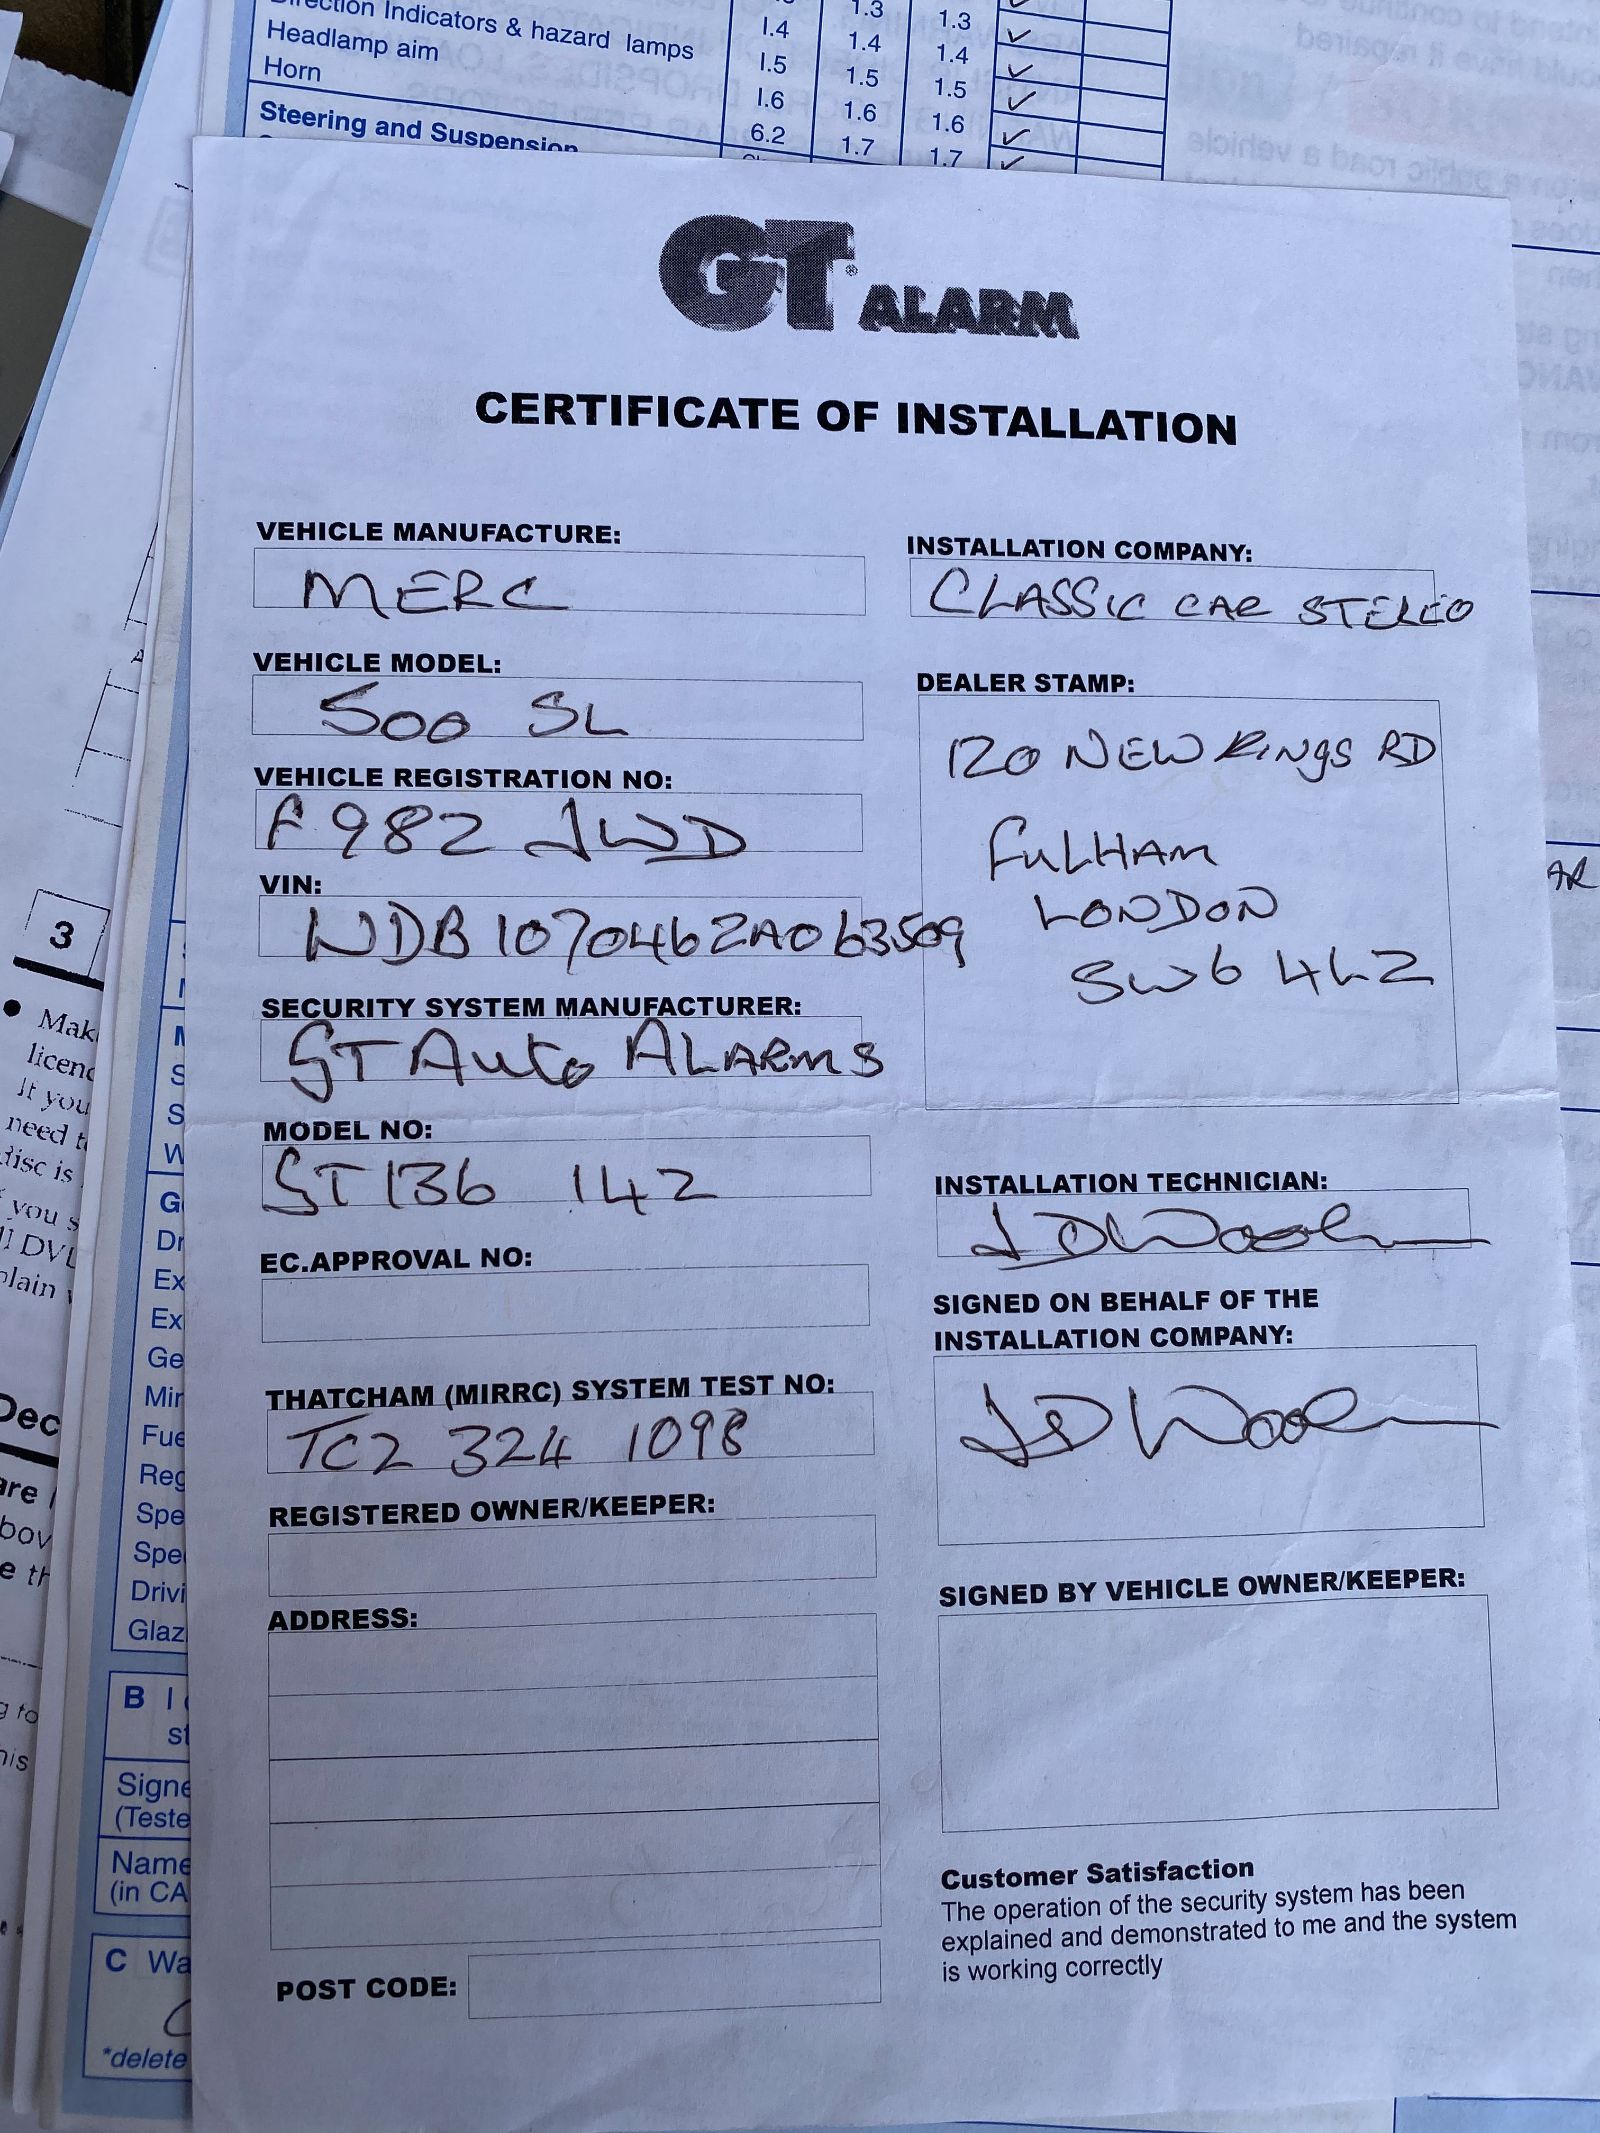 Direction Indicators & hazard lamps 1.4 1.3 1.3
Headlamp aim 1.5 1.4 1.4
Horn 1.6 1.5 1.5
Steering and Suspension 6.2 1.6 1.6
1.7 1.7
GT ALARM
CERTIFICATE OF INSTALLATION
VEHICLE MANUFACTURE:
MERC
VEHICLE MODEL:
500 SL
VEHICLE REGISTRATION NO:
F982 JWD
VIN:
WDB1070462A063509
SECURITY SYSTEM MANUFACTURER:
GT Auto ALARMS
MODEL NO:
GT136 142
EC.APPROVAL NO:
THATCHAM (MIRRC) SYSTEM TEST NO:
TC2 324 1098
REGISTERED OWNER/KEEPER:
ADDRESS:
POST CODE:
INSTALLATION COMPANY:
CLASSIC CAR STEREO
DEALER STAMP:
120 NEW KINGS RD
FULHAM
LONDON
SW6 4LZ
INSTALLATION TECHNICIAN:
SIGNED ON BEHALF OF THE
INSTALLATION COMPANY:
SIGNED BY VEHICLE OWNER/KEEPER:
Customer Satisfaction
The operation of the security system has been
explained and demonstrated to me and the system
is working correctly
3
Make
licenc
If you
need t
disc is
you s
DVL
plain
Dec
are
bov
e th
g to
his
G
Dr
Ex
Ex
Ge
Mir
Fue
Reg
Spe
Spe
Drivi
Glaz
B I
st
Signe
(Teste
Name
(in CA
C Wa
*delete